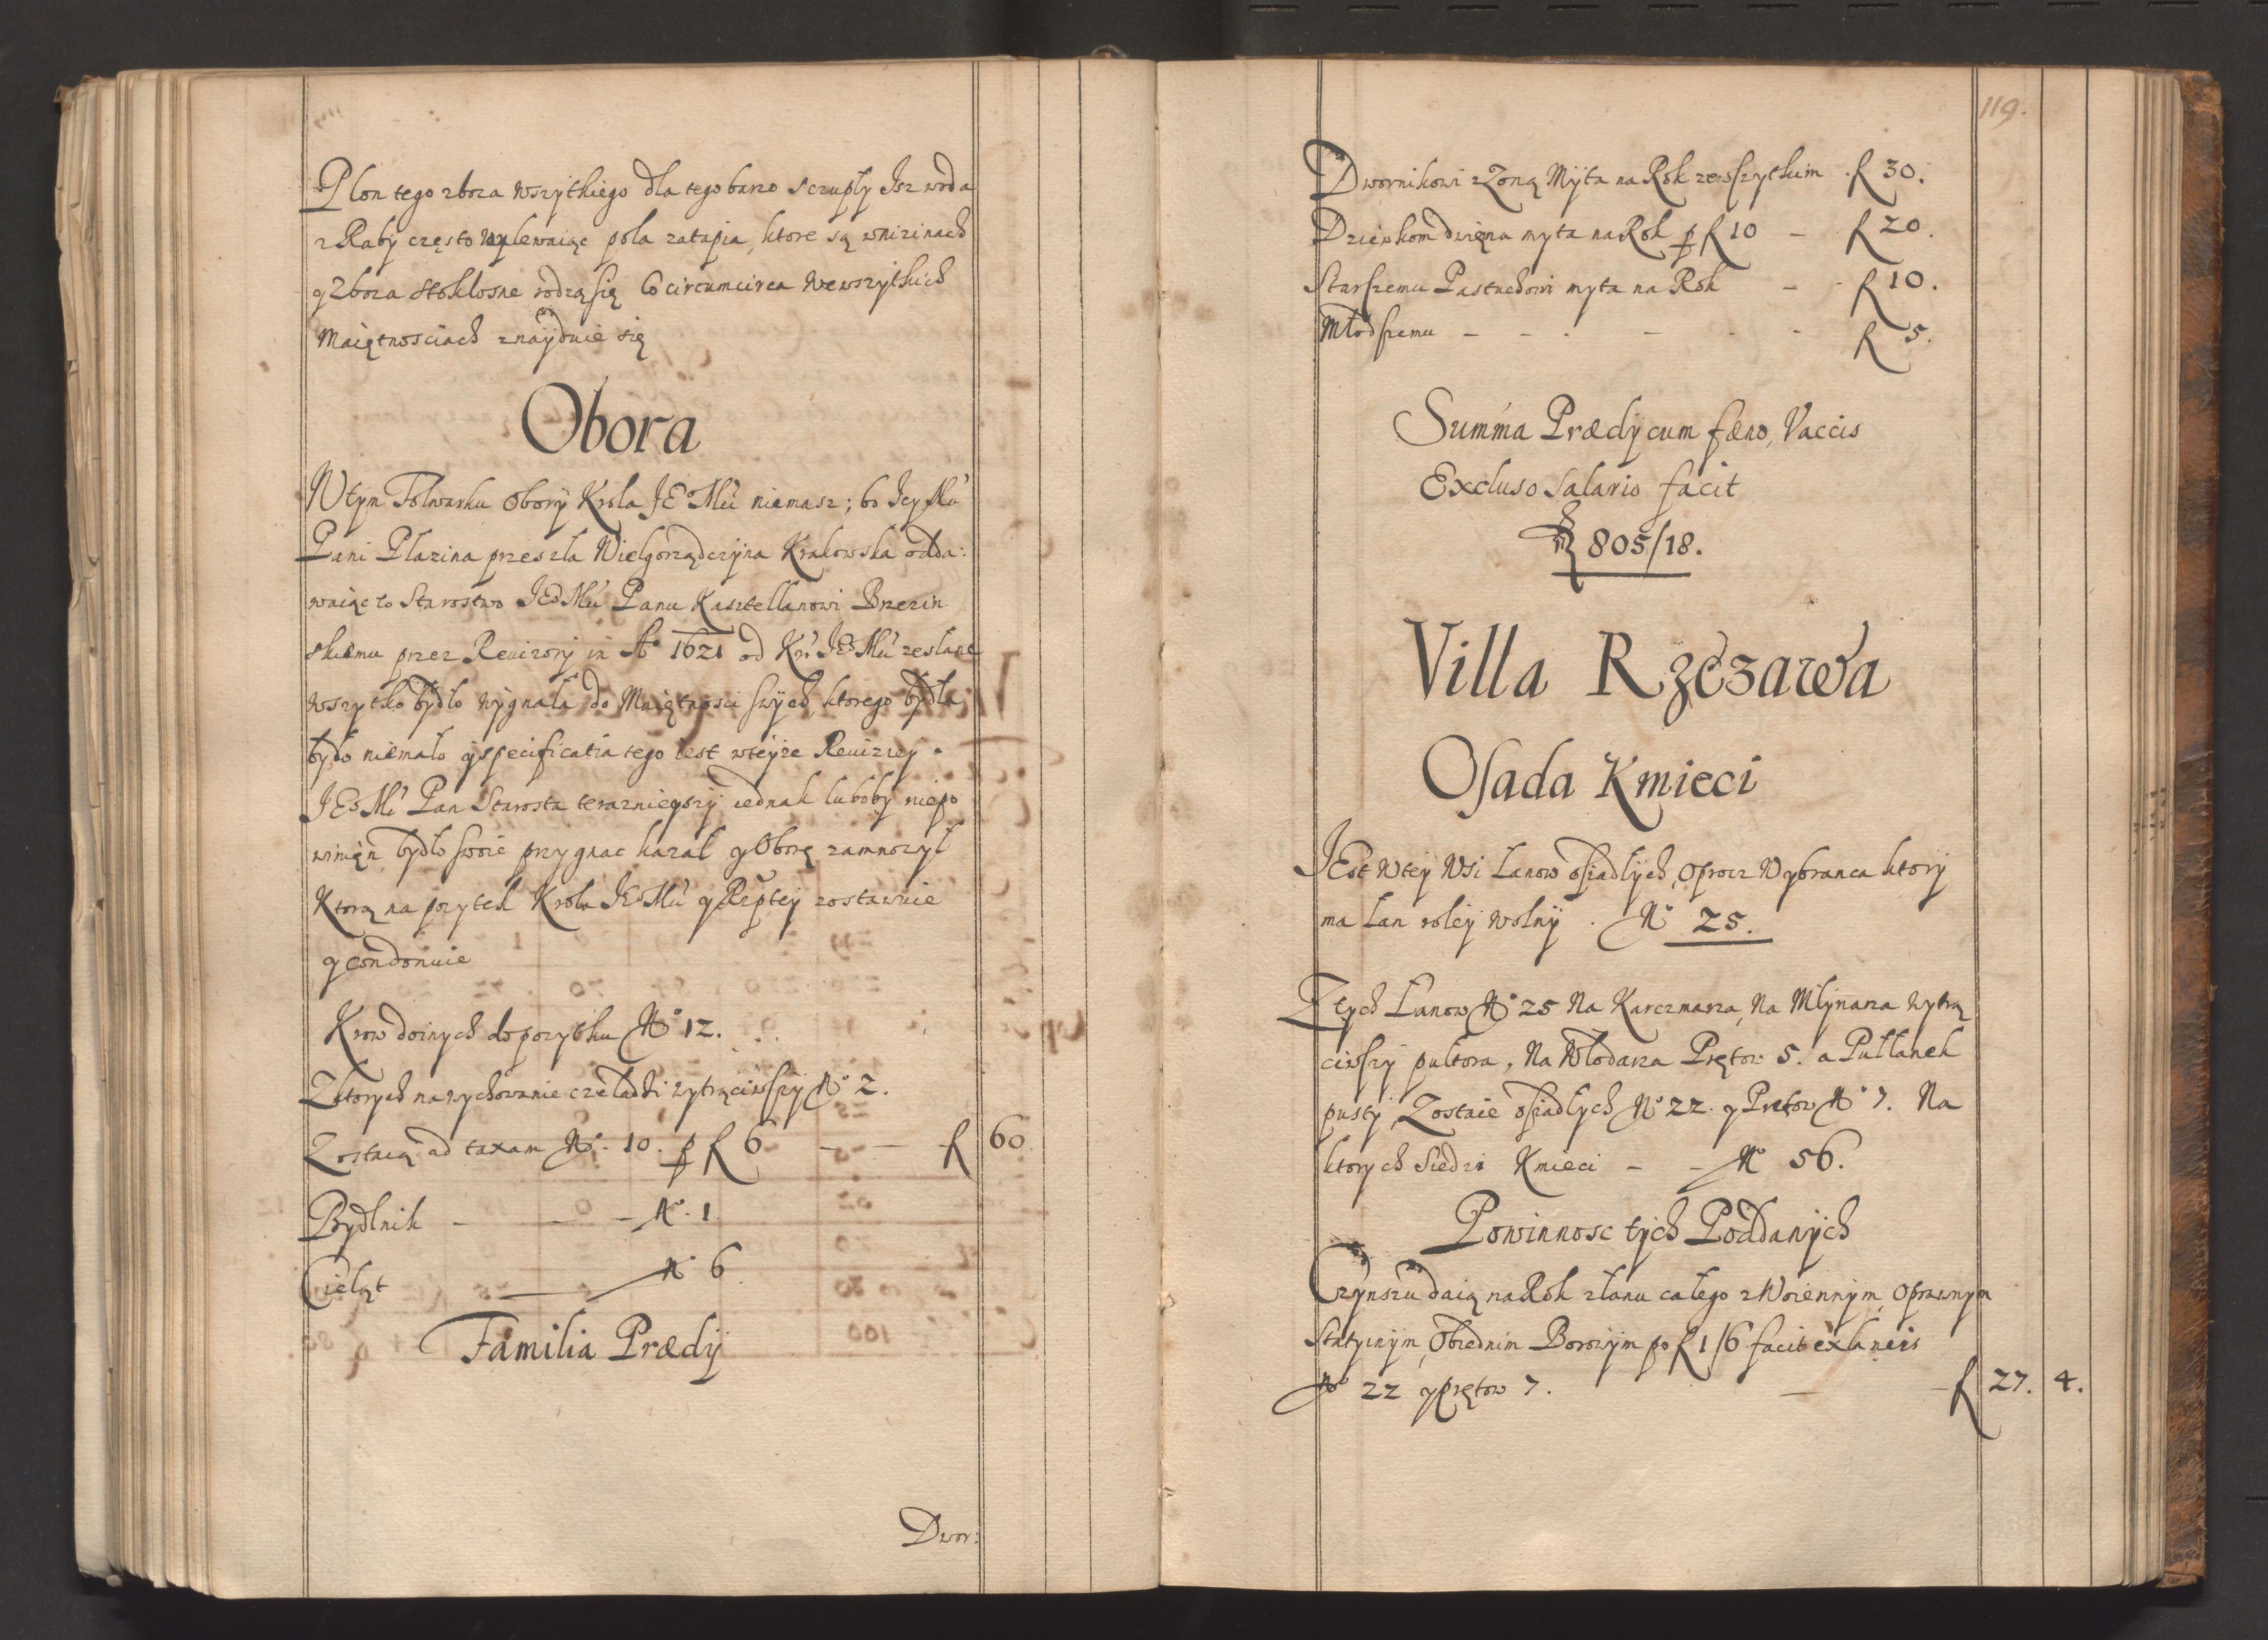 Plon tego zboza wszytkiego dla tego barzo sczupły Isz woda
z Raby często wylewaiąc pola zatapia, ktore są wnizinach
y Zboza stokłosne rodzą się Co circumcirca we wszytkich
Maiętnosciach znayduie się
Obora
W tym Folwarku Obory Krola JEo Mci niemasz; bo Jey Mć
Pani Płazina przeszła Wielgorządczyna Krakowska odda:
waiąc to Starostwo JEo Mci Panu Kasztellanowi Brzezin
skiemu przez Reuizory in Ao 1621 od Kr. JEo Mci zesłane
wszytko bydło wygnała do Maiętnosci swych, ktorego bydła
było niemało y specificatia tego iest wteyze Reuizyey.
JEo Mć Pan Starosta teraznieyszy iednak luboby niepo
winięn bydło swoie przygnac kazał y Oborę zamnozył
Ktorą na pozytek Krola JEo Mci y Rzptey zostawuie
y condonuie
Krow doinych do pozytku No 12.
Z ktorych na wychowanie czeladki wytrąciwszy No 2.
Zostaią ad taxam No 10. p f 6 — — f 60
Bydlnik — — — No 1
Cieląt — No 6
Familia Prædy
Dwor:
119.
Dwornikowi z Zoną Myta na Rok zewszytkim f 30.
Dziewkom dwięma myta na Rok p f 10 — f 20.
Starszemu Pastuchowi myta na Rok — f 10.
Młodszemu — — — f 5.
Summa Prædy cum fæno, Vaccis
Excluso Salario facit
f 805/18.
Villa Rzezawa
Osada Kmieci
JEst w tey Wsi Łanow osiadłych, oprocz Wybranca ktory
ma łan roley wolny. No 25.
Z tych Łanow No 25 Na Karczmarza, Na Młynarza wytrą
ciwszy pułtora, Na Włodarza Prętow 5. a Pułłanek
pusty, Zostaie osiadłych No 22. y Prętow No 7. Na
ktorych Siedzi Kmieci — — No 56.
Powinnosc tych Poddanych
Czynszu daią na Rok z łanu całego z Woiennym, Oprawnym
Stacyinym, Obiednim Borowym po f 1/6 facit ex laneis
No 22 y prętow 7. — f 27. 4.